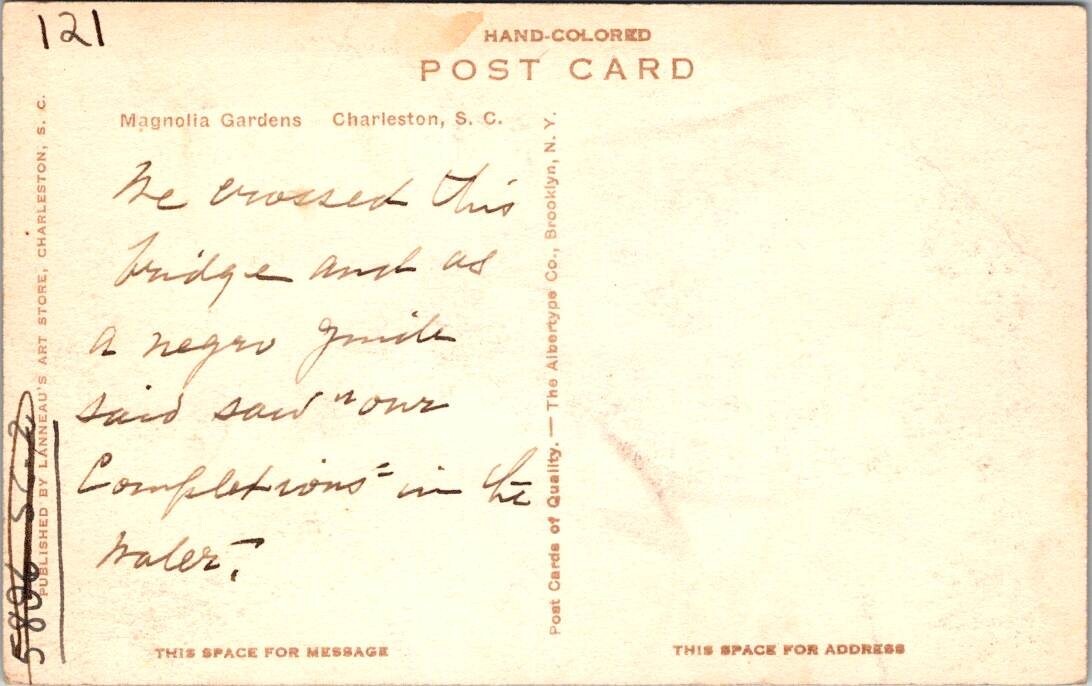 121
HAND-COLORED
POST CARD
Magnolia Gardens Charleston, S. C.
We crossed this
bridge and as
a negro guide
said saw "our
Completions" in the
water.
THIS SPACE FOR MESSAGE
THIS SPACE FOR ADDRESS
PUBLISHED BY LANNEAU'S ART STORE, CHARLESTON, S. C.
Post Cards of Quality. — The Albertype Co., Brooklyn, N. Y.